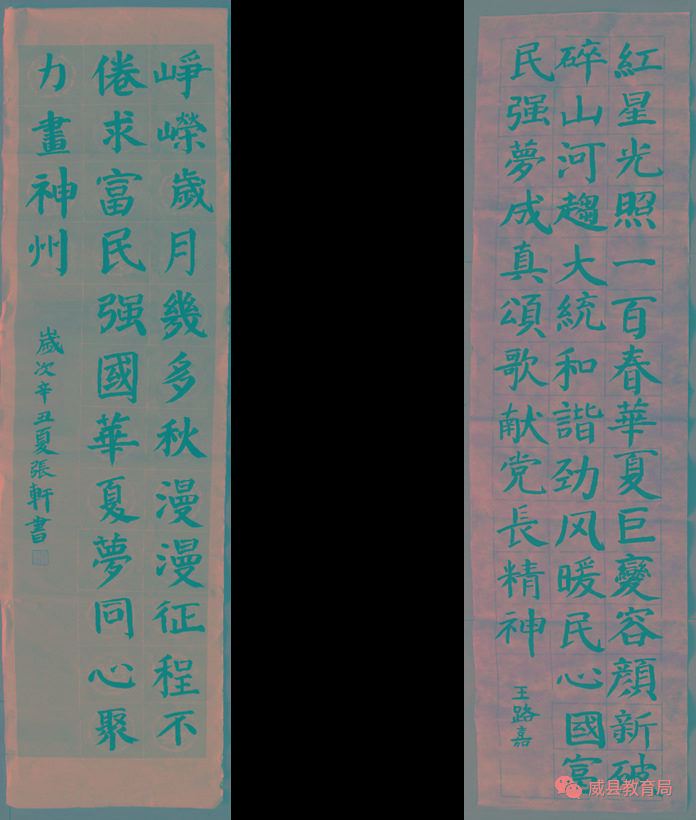 崢嶸歲月幾多秋漫漫征程不
倦求富民强國華夏夢同心聚
力畫神州
歲次辛丑夏張軒書
紅星光照一百春華夏巨變容顔新破
碎山河趨大統和諧劲风暖民心國富
民强夢成真頌歌献党長精神
王路嘉
威县教育局